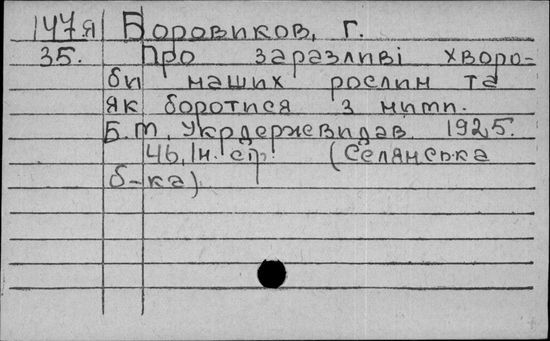 147я Боровиков, г.
35. Про заразливі хворо-
би наших рослин та
як боротися з ними.
Б.м, Укрдержвидав 1925.
46, Ін. ст. (Селянська
б-ка)